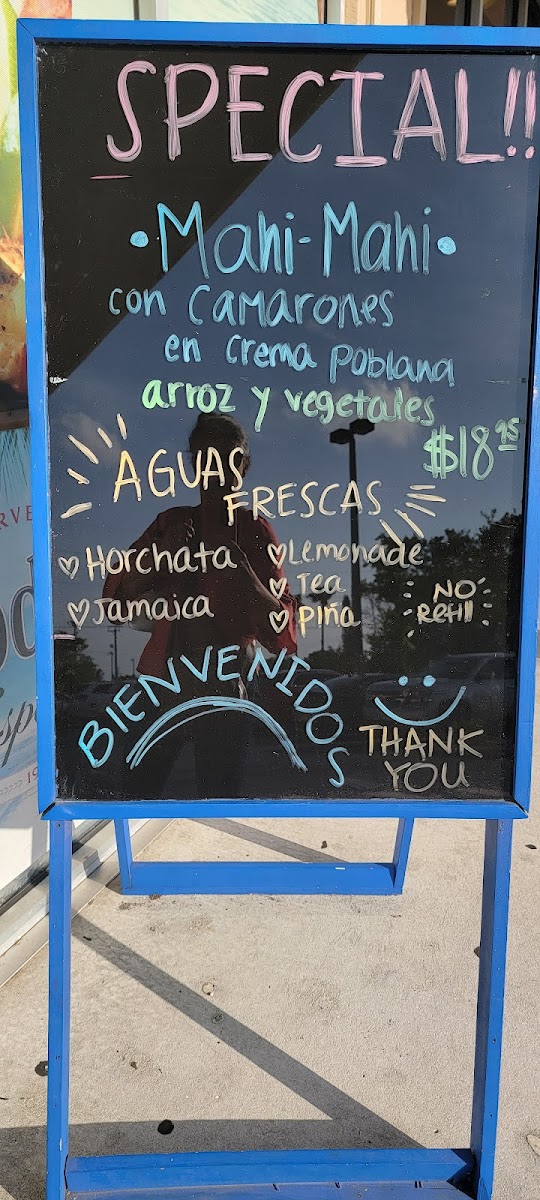 SPECIAL!!
•Mahi-Mahi•
con Camarones
en crema poblana
arroz y vegetales
$18.95
AGUAS
FRESCAS
♡Horchata
♡Jamaica
♡Lemonade
♡Tea
♡Piña
NO
Refill
BIENVENIDOS
THANK
YOU